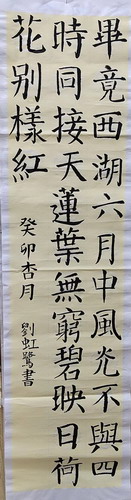 畢竟西湖六月中風光不與四
時同接天蓮葉無窮碧映日荷
花别樣紅
癸卯杏月
劉虹鷺書